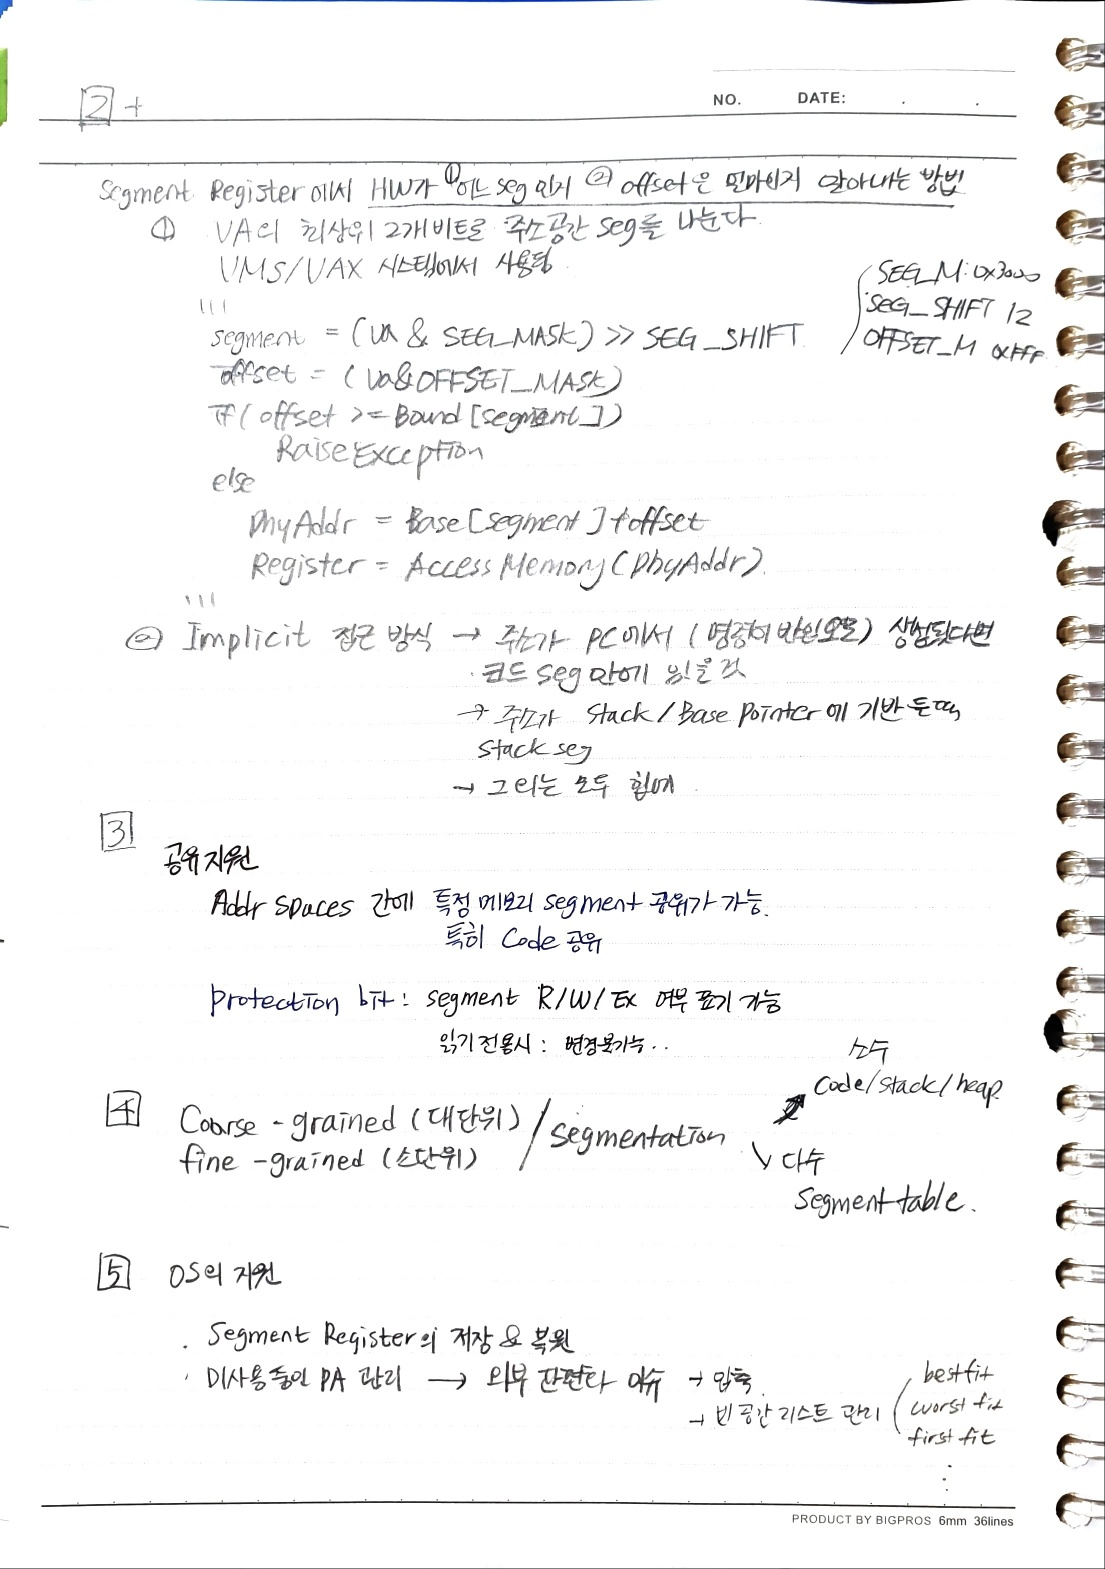 2 +
NO. DATE: . .
Segment Register에서 HW가 ① 어느 seg인지 ② offset은 얼마인지 알아내는 방법
① VA의 최상위 2개비트로 주소공간 seg를 나눈다
VMS/VAX 시스템에서 사용됨
SEG_M: 0x3000
SEG_SHIFT 12
OFFSET_M 0xFFF
'''
segment = (va & SEG_MASK) >> SEG_SHIFT
offset = (va & OFFSET_MASK)
if (offset >= Bound[segment])
RaiseException
else
PhyAddr = Base[segment] + offset
Register = AccessMemory(PhyAddr)
'''
② Implicit 접근 방식 → 주소가 PC에서 (명령어 반입으로) 생성됐다면
코드 seg 안에 있을 것
→ 주소가 Stack/Base pointer에 기반
stack seg
→ 그외는 모두 힙에
3
공유 지원
Addr spaces 간에 특정 메모리 segment 공유가 가능.
특히 Code 공유
protection bit: segment R/W/Ex 여부 표기 가능
읽기 전용시: 변경불가능..
4
Coarse-grained (대단위)
fine-grained (소단위)
/ segmentation
↗ 소수
code/stack/heap
↘ 다수
Segment table.
5 OS의 지원
. Segment Register의 저장 & 복원
. 미사용중인 PA 관리 → 외부 단편화 이슈 → 압축
→ 빈공간 리스트 관리
best fit
worst fit
first fit
⋮
PRODUCT BY BIGPROS 6mm 36lines